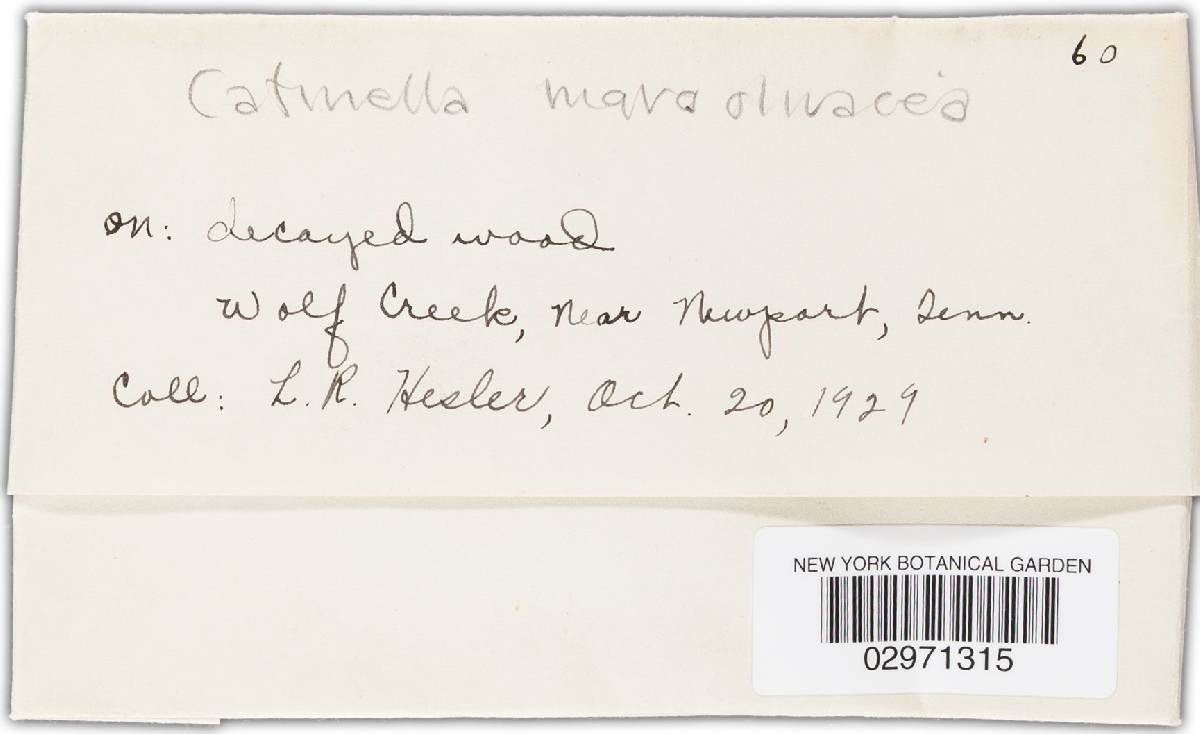 60
Catinella nigro olivacea
on: decayed wood
Wolf Creek, near Newport, Tenn.
Coll: L. R. Hesler, Oct. 20, 1929
NEW YORK BOTANICAL GARDEN
02971315